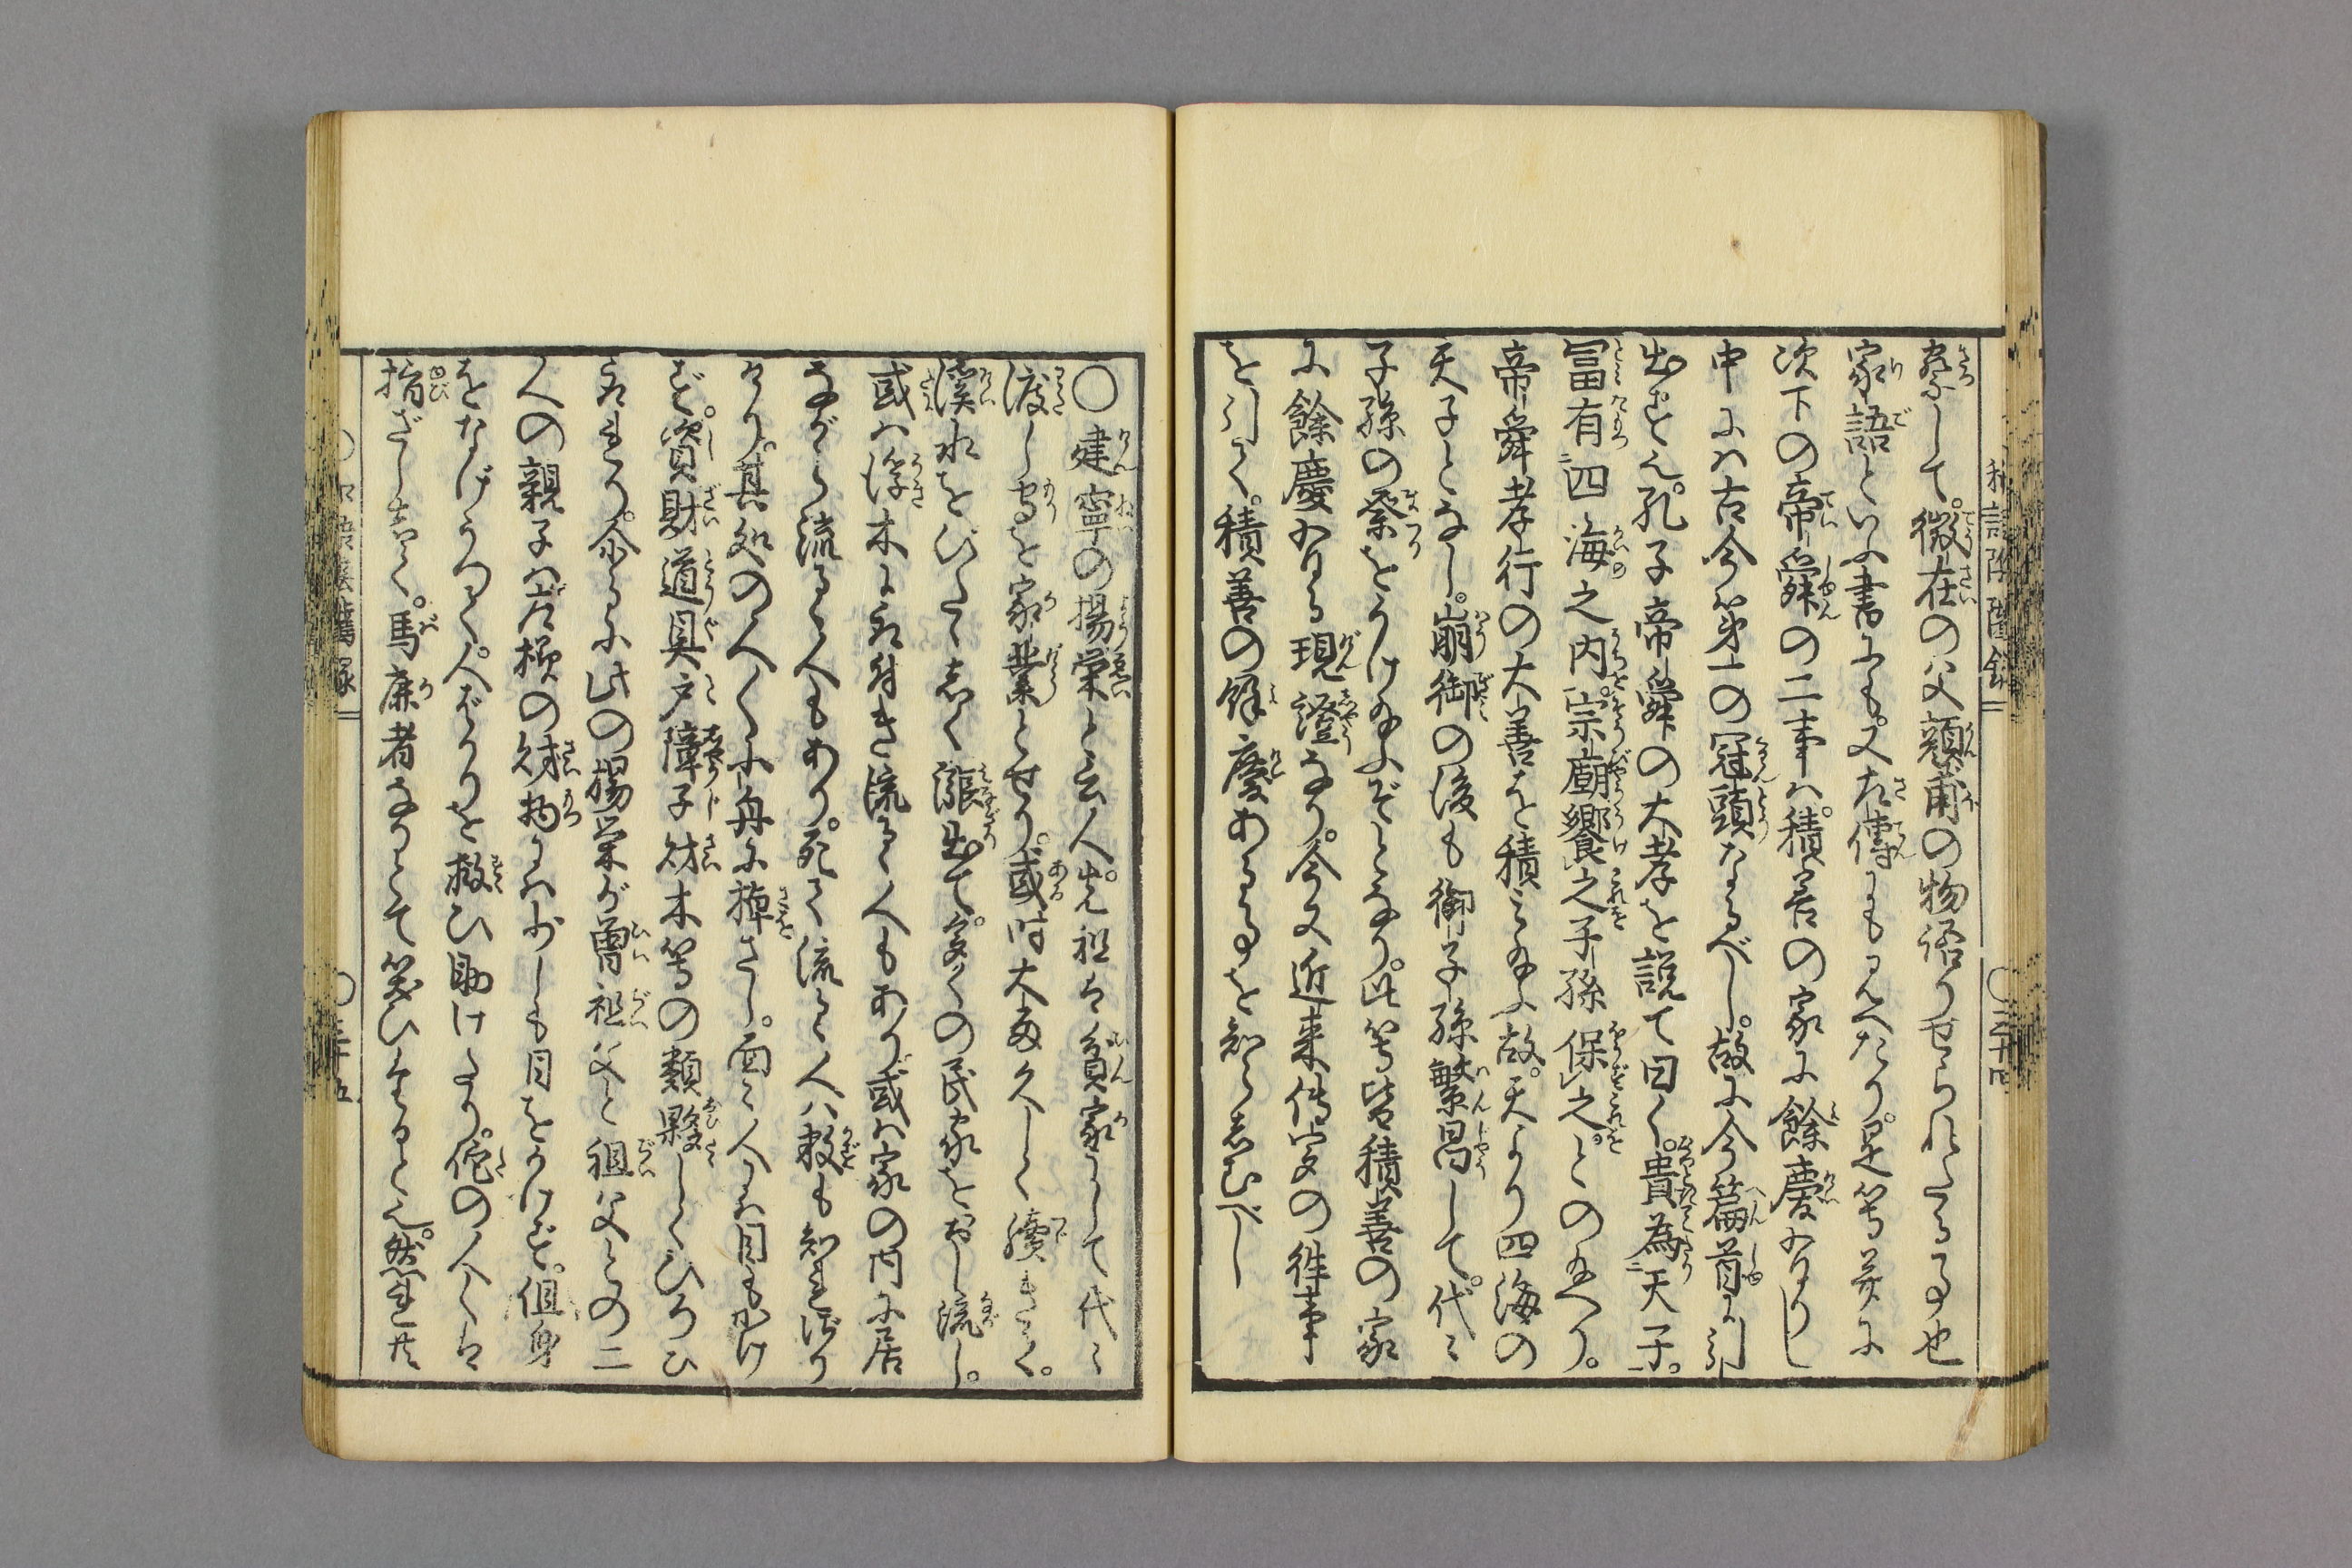 察して。徴在の父顔甫の物語りせられたる事也
家語といふ書にも。又左傳にも見へたり。是等并に
次下の帝舜の二事ハ。積善の家に餘慶ありし
中にハ古今第一の冠頭なるべし。故に今篇首に引
出せり。孔子帝舜の大孝を説て曰く。貴為天子。
冨有四海之内。宗廟饗之子孫保之。との玉へり。
帝舜孝行の大善を積ミ玉ふ故。天より四海の
天子となし。崩御の後も御子孫繁昌して。代ミ
子孫の祭をうけ玉ふぞとなり。此等皆積善の家
に餘慶ある現證なり。今又近来傳定の徃事
を引て。積善の餘慶ある事を知らしむべし
和語陰隲録
〇三十四
〇建寧の楊榮と云人。先祖は貧家にして代ミ
渡し守を家業とせり。或時大雨久しく續きて。
溪水をびたゝしく漲出て。多くの民家をおし流し。
或ハ浮木に取付き流るゝ人もあり。或ハ家の内に居
ながら流るゝ人もあり。死て流るゝ人ハ数も知れざり
けり。其処の人〳〵小舟に棹さし。面ミ人にハ目もかけ
ず。資財道具戸障子材木等の類夥しくひろひ
取ける。余るに此の楊榮が曽祖父と祖父との二
人の親子ハ。左様の財物にハ少しも目をかけず。但身
をなげうつて。人ばかりを救ひ助けたり。佗の人〳〵は
指ざしして。馬廉者なりとて笑ひけるとぞ。然れ共